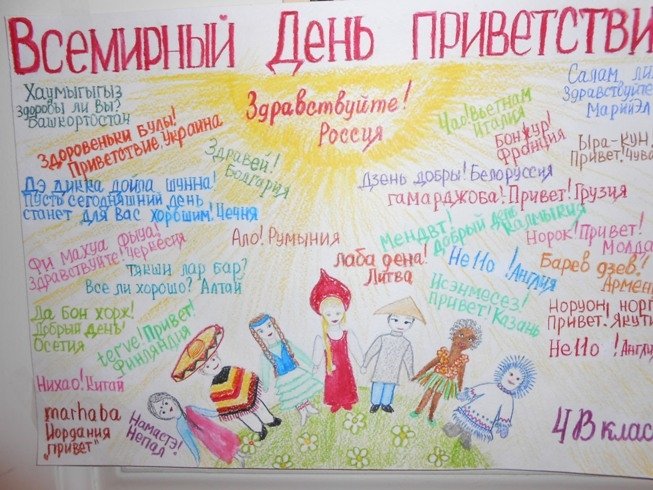 Всемирный День приветстви
Хаумыгыгыз
Здоровы ли вы?
Башкортостан
Здоровеньки Булы!
Приветствие, Украина
Здравей!
Болгария
Здравствуйте!
Россия
Чао! Вьетнам
Италия
Бонжур!
Франция
Салам, ли
Здравствуйте
Марий Эл
Ыра-кун,
Привет, Чува
Дэ дикка дойла шунна!
Пусть сегодняшний день
станет для вас хорошим! Чечня
Дзень добры! Белоруссия
гамарджоба! Привет! Грузия
Мендвт!
Добрый день Калмыкия
Норок! Привет!
Молда
Фи махуа фыуа!
Здравствуйте! Черкесия
Ало! Румыния
Лаба дена!
Литва
Hello! Англия
Барев дзев!
Армен
Тякши лар бар?
Все ли хорошо? Алтай
Исэнмесез!
Привет! Казань
Норуон, норг
Привет. Якути
Ла бон хорж!
Добрый день!
Осетия
terve! Привет!
Финляндия
Hello! Англи
Нихао! Китай
marhaba
Иордания
"привет"
Намастэ!
Непал
4В клас